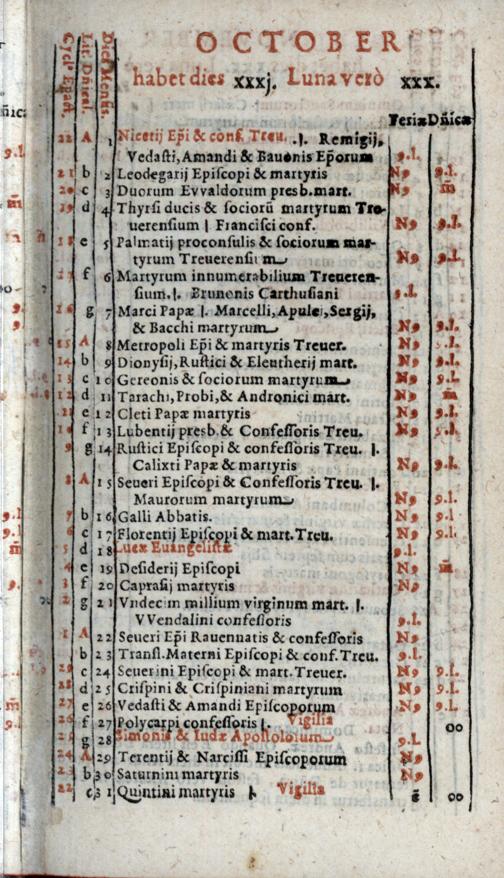 OCTOBER
habet dies xxxj. Luna verò xxx.
Cycl⁹ Epact. Lit. Dñical. Dies Mensis. Feriæ Dñicæ
22 A 1 Nicetij Ep̄i & conf. Treu. .|. Remigij,
Vedasti, Amandi & Bauonis Ep̄orum 9.l.
21 b 2 Leodegarij Episcopi & martyris N9 9.l.
20 c 3 Duorum Evvaldorum presb. mart. N9 m̄
19 d 4 Thyrsi ducis & sociorū martyrum Tre-
uerensium | Francisci conf. N9 9.l.
18 e 5 Palmatij proconsulis & sociorum mar-
tyrum Treuerensiū N9 9.l.
17 f 6 Martyrum innumerabilium Treueren-
sium. |. Brunonis Carthusiani 9.l.
16 g 7 Marci Papæ |. Marcelli, Apulei, Sergij,
& Bacchi martyrum N9 9.l.
15 A 8 Metropoli Ep̄i & martyris Treuer. N9 9.l.
14 b 9 Dionysij, Rustici & Eleutherij mart. N9 9.l.
13 c 10 Gereonis & sociorum martyrum N9 m̄
12 d 11 Tarachi, Probi, & Andronici mart. N9 m̄
11 e 12 Cleti Papæ martyris N9 9.l.
10 f 13 Lubentij presb. & Confessoris Treu. N9 9.l.
9 g 14 Rustici Episcopi & confessoris Treu. |.
Calixti Papæ & martyris N9 9.l.
8 A 15 Seueri Episcopi & Confessoris Treu. |.
Maurorum martyrum N9 9.l.
7 b 16 Galli Abbatis. N9 9.l.
6 c 17 Florentij Episcopi & mart. Treu. N9 9.l.
5 d 18 Lucæ Euangelistæ 9.l.
4 e 19 Desiderij Episcopi N9 m̄
3 f 20 Caprasij martyris N9
2 g 21 Vndecim millium virginum mart. |.
VVendalini confessoris 9.l.
1 A 22 Seueri Ep̄i Rauennatis & confessoris N9
b 23 Transl. Materni Episcopi & conf. Treu. 9.l.
29 c 24 Seuerini Episcopi & mart. Treuer. N9 9.l.
28 d 25 Crispini & Crispiniani martyrum N9 9.l.
27 e 26 Vedasti & Amandi Episcoporum N9 9.l.
26 f 27 Polycarpi confessoris |. Vigilia oo
25 g 28 Simonis & Iudæ Apostolorum 9.l.
24 A 29 Terentij & Narcissi Episcoporum N9
23 b 30 Saturnini martyris N9
22 c 31 Quintini martyris |. Vigilia ē oo